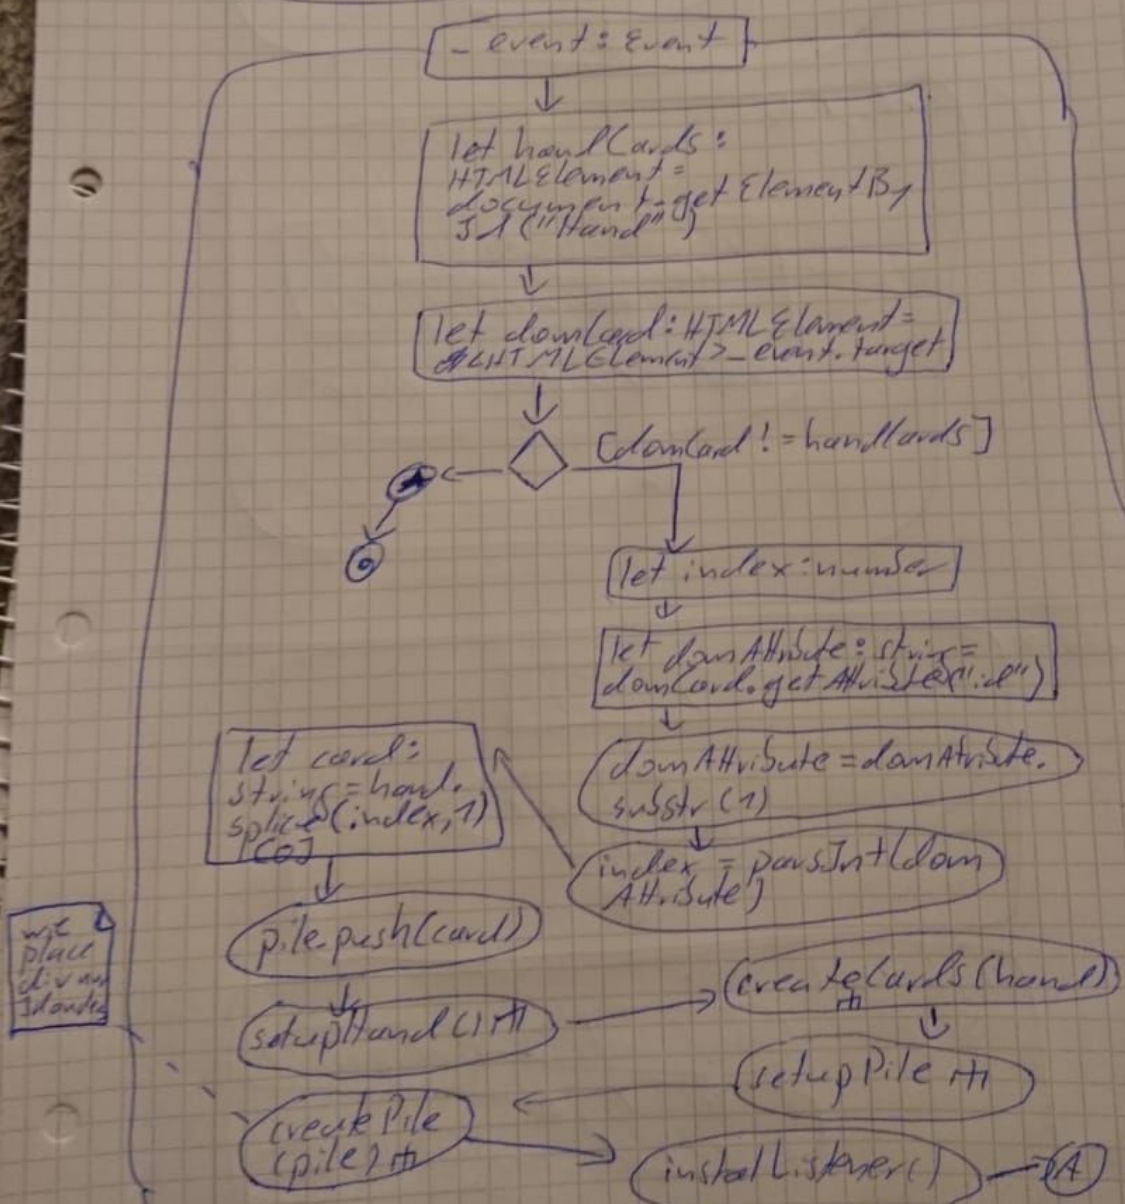 _event: Event
let handCards:
HTMLElement=
document.getElementBy
Id("Hand")
let domCard: HTMLElement=
<HTMLElement>_event.target
[domCard != handCards]
let index:number
let domAttribute: string=
domCard.getAttribute("id")
domAttribute = domAtribute.
substr(1)
index = parsInt(dom
Attribute)
let card:
string=hand.
splice(index,1)
[0]
pile.push(card)
setupHand()
createCards(hand)
setupPile
createPile
(pile)
installListener()
A
wie
place
div nur